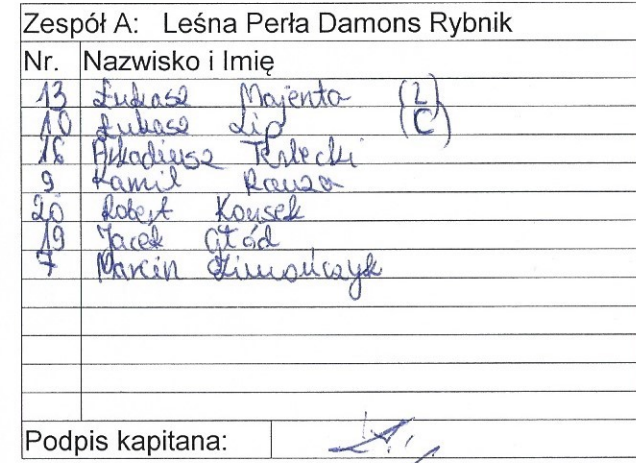 Zespół A: Leśna Perła Damons Rybnik
Nr. Nazwisko i Imię
13 Łukasz Majenta (L)
10 Łukasz Lip (C)
16 Arkadiusz Terlecki
9 Kamil Rauza
20 Robert Kousek
19 Jacek Głód
7 Marcin Szimończyk
Podpis kapitana: